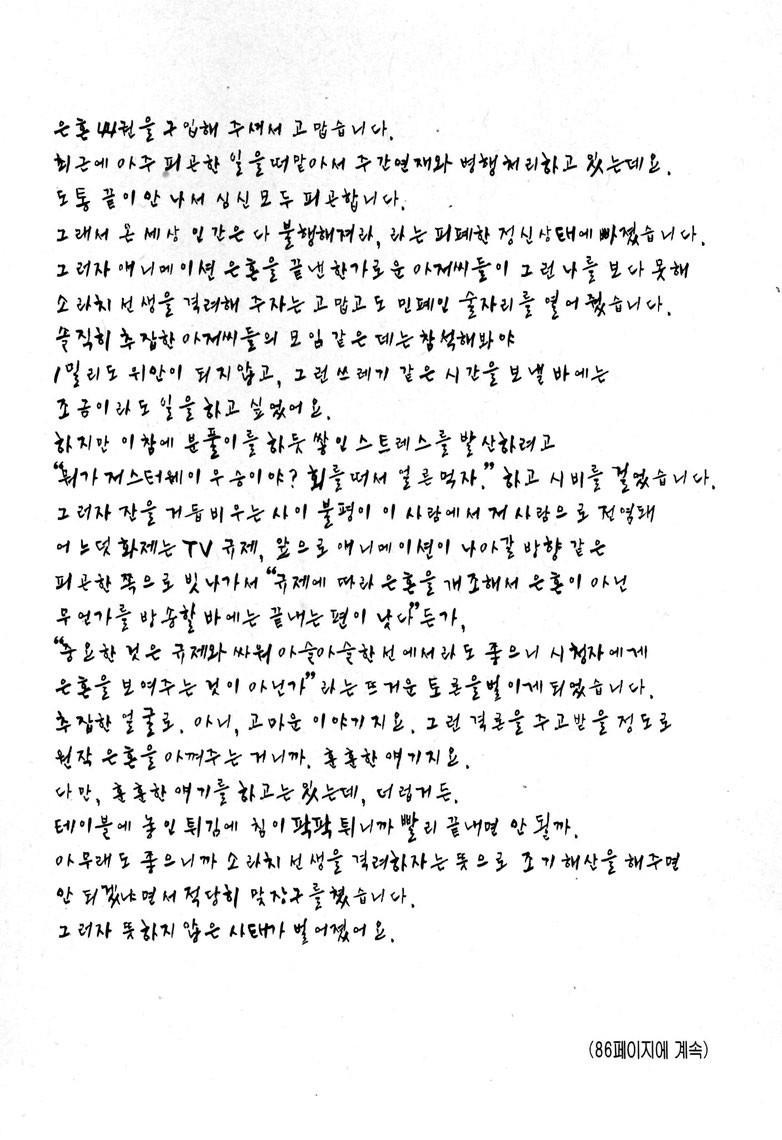 은혼 44권을 구입해 주셔서 고맙습니다.
최근에 아주 피곤한 일을 떠맡아서 주간연재와 병행처리하고 있는데요.
도통 끝이 안 나서 심신 모두 피곤합니다.
그래서 온 세상 인간은 다 불행해져라, 라는 피폐한 정신상태에 빠졌습니다.
그러자 애니메이션 은혼을 끝낸 한가로운 아저씨들이 그런 나를 보다 못해
소라치 선생을 격려해 주자는 고맙고도 민폐인 술자리를 열어 줬습니다.
솔직히 추잡한 아저씨들의 모임 같은 데는 참석해봐야
1밀리도 위안이 되지 않고, 그런 쓰레기 같은 시간을 보낼 바에는
조금이라도 일을 하고 싶었어요.
하지만 이참에 분풀이를 하듯 쌓인 스트레스를 발산하려고
"뭐가 저스터웨이 우승이야? 회를 떠서 얼른 먹자." 하고 시비를 걸었습니다.
그러자 잔을 거듭 비우는 사이 불평이 이 사람에서 저 사람으로 전염돼
어느덧 화제는 TV 규제, 앞으로 애니메이션이 나아갈 방향 같은
피곤한 쪽으로 빗나가서 "규제에 따라 은혼을 개조해서 은혼이 아닌
무언가를 방송할 바에는 끝내는 편이 낫다"든가,
"중요한 것은 규제와 싸워 아슬아슬한 선에서라도 좋으니 시청자에게
은혼을 보여주는 것이 아닌가"라는 뜨거운 토론을 벌이게 되었습니다.
추잡한 얼굴로. 아니, 고마운 이야기지요. 그런 격론을 주고받을 정도로
원작 은혼을 아껴주는 거니까. 훈훈한 얘기지요.
다만, 훈훈한 얘기를 하고는 있는데, 더럽거든.
테이블에 놓인 튀김에 침이 팍팍 튀니까 빨리 끝내면 안 될까.
아무래도 좋으니까 소라치 선생을 격려하자는 뜻으로 조기해산을 해주면
안 되겠냐면서 적당히 맞장구를 쳤습니다.
그러자 뜻하지 않은 사태가 벌어졌어요.
(86페이지에 계속)